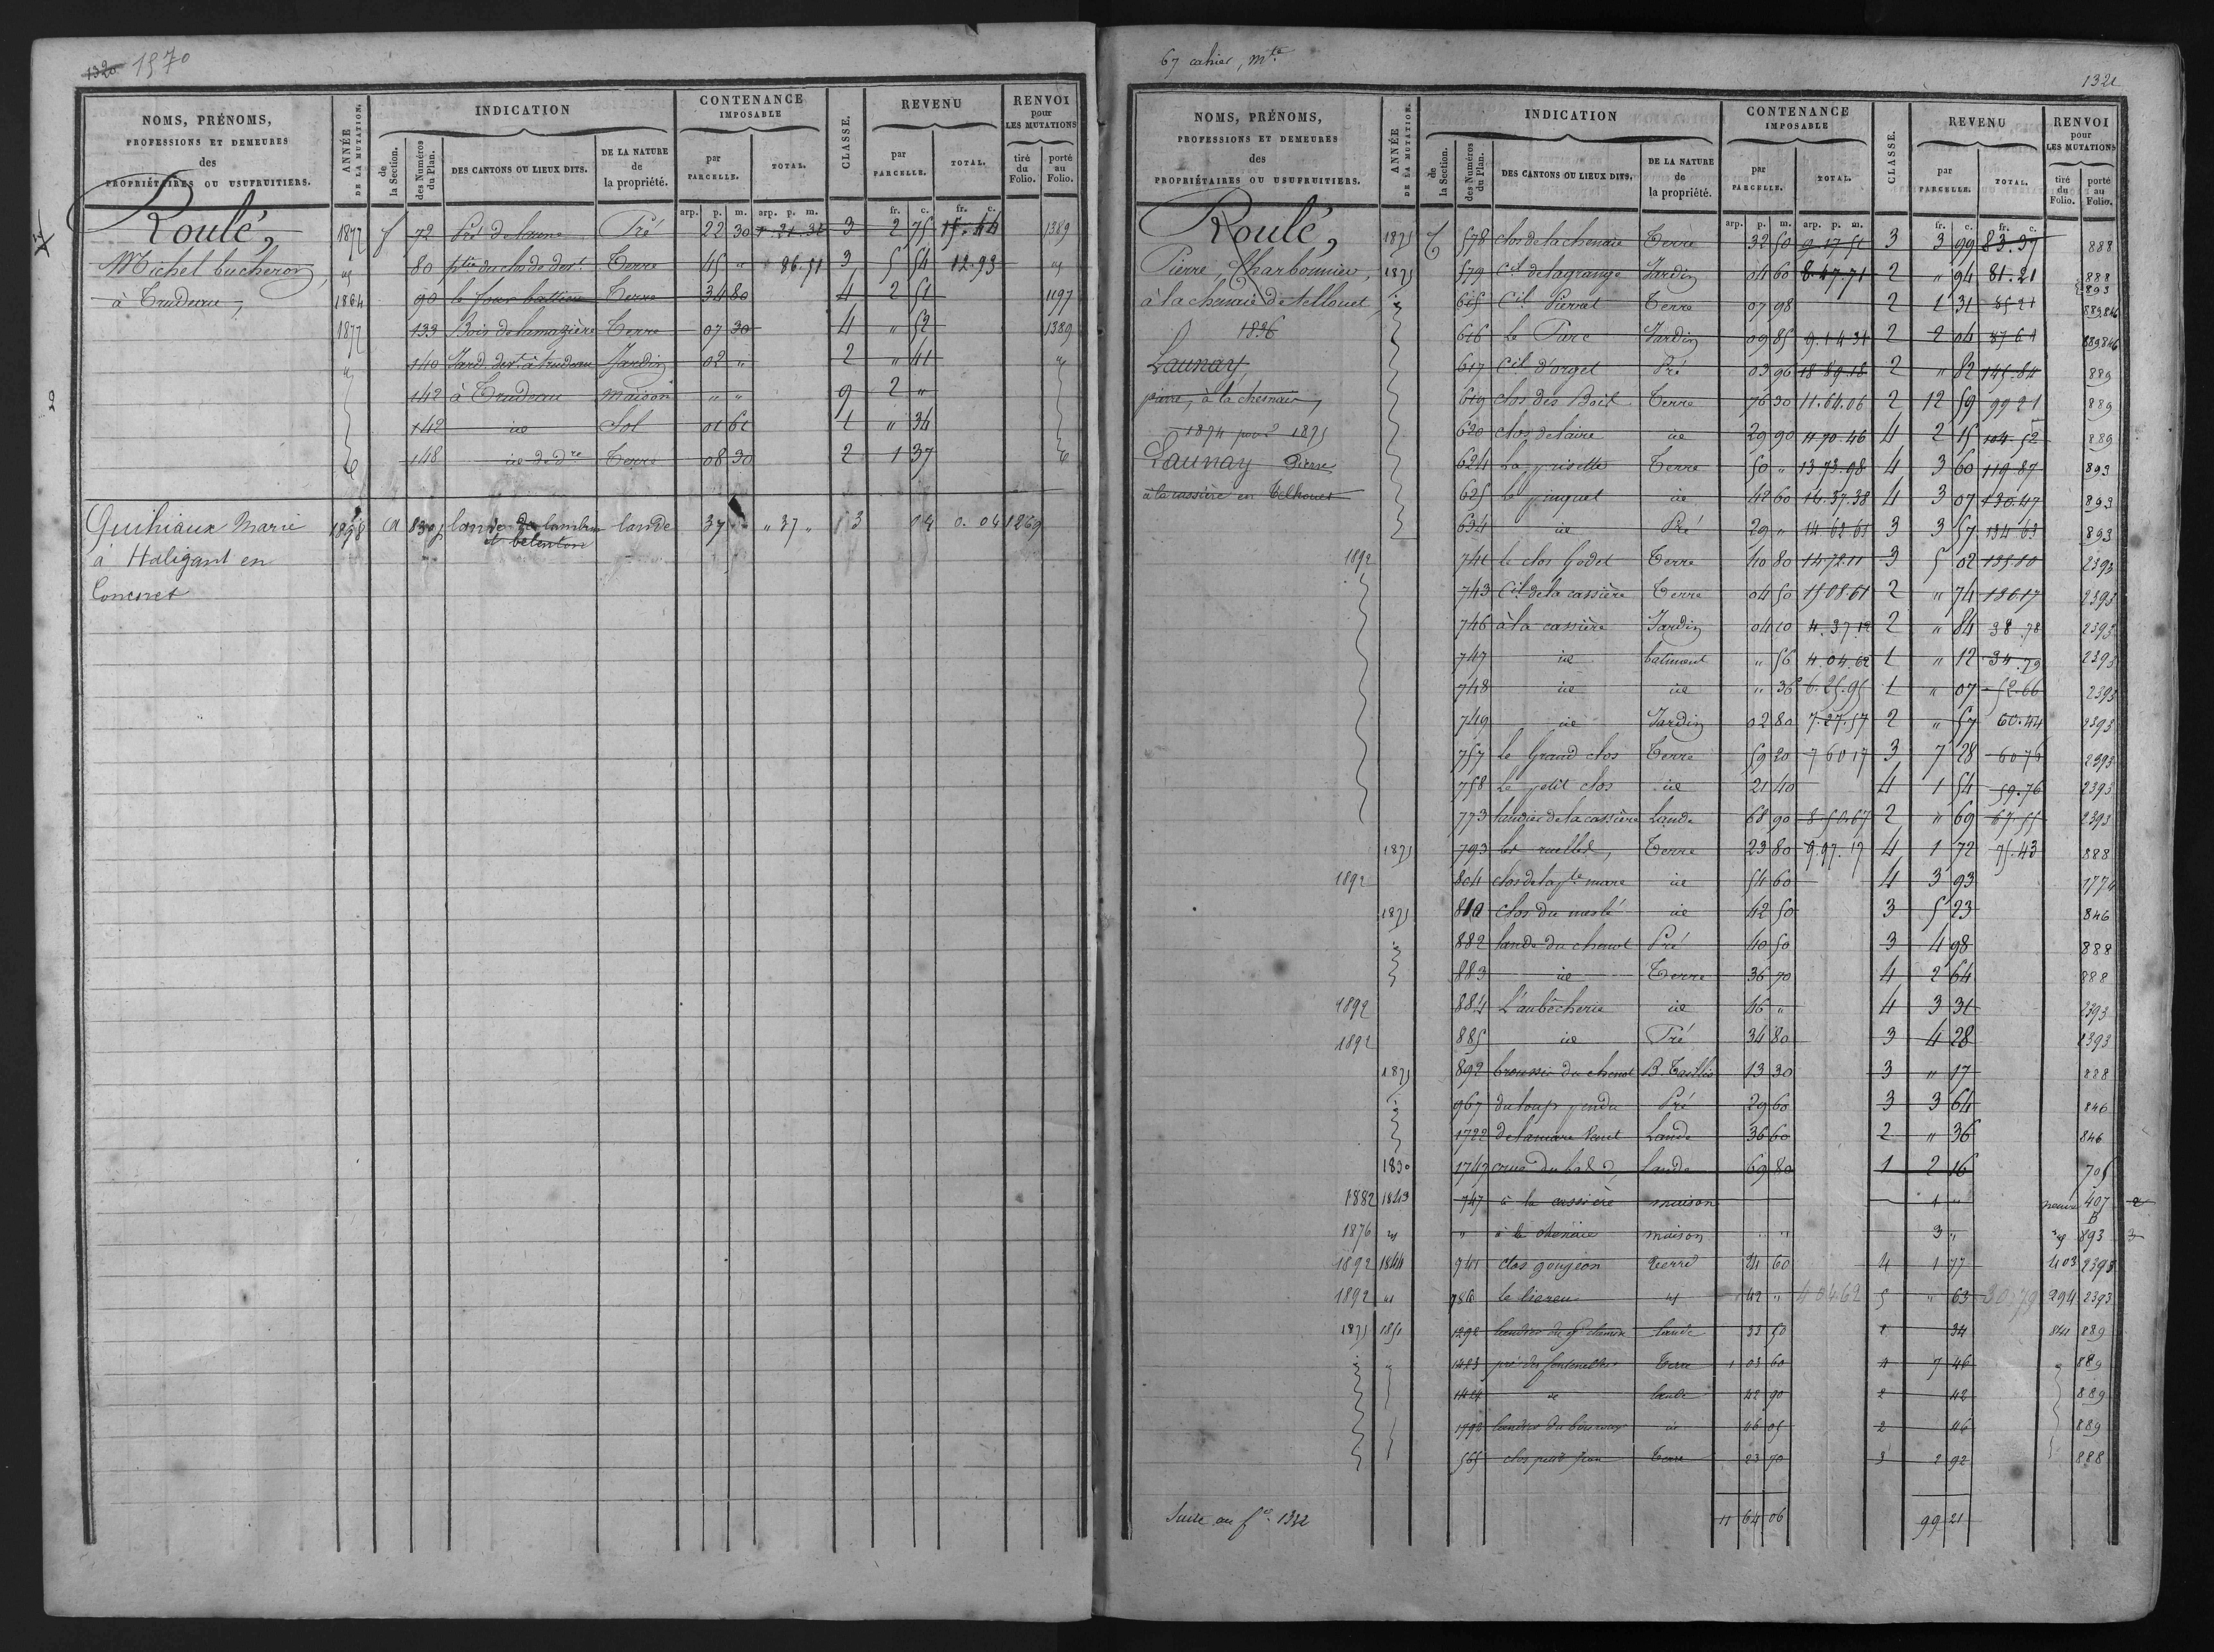 1320 1570
NOMS, PRÉNOMS, PROFESSIONS ET DEMEURES des PROPRIÉTAIRES OU USUFRUITIERS.
ANNÉE DE LA MUTATION.
INDICATION
de la Section.
des Numéros du Plan.
DES CANTONS OU LIEUX DITS.
DE LA NATURE de la propriété.
CONTENANCE IMPOSABLE
par PARCELLE.
TOTAL.
CLASSE.
REVENU
par PARCELLE.
TOTAL.
RENVOI pour LES MUTATIONS
tiré du Folio.
porté au Folio.
arp. p. m. arp. p. m. fr. c. fr. c.
Roulé, 1877 72 Pré 22 30 3 2 75 15.44 1389
Michel bucheron, 80 Terre 45 " 86.51 3 5 54 12.93
à Trudeau, 1864 90 le four Terre 34 80 4 2 51 1197
1877 133 Bois de lamazière Terre 07 30 4 " 52 1389
140 Jard. à trudeau Jardin 02 " 2 " 41
142 à Trudeau maison " " 9 2 "
142 id Sol 01 61 1 " 34
148 id Terre 08 30 2 1 37
Guihiaux Marie 1898 lande lande 37 " 37 " 3 04 0.04 1269
à Haligant en
Concoret
67 cahier, Mte
1321
NOMS, PRÉNOMS, PROFESSIONS ET DEMEURES des PROPRIÉTAIRES OU USUFRUITIERS.
ANNÉE DE LA MUTATION.
INDICATION
de la Section.
des Numéros du Plan.
DES CANTONS OU LIEUX DITS.
DE LA NATURE de la propriété.
CONTENANCE IMPOSABLE
par PARCELLE.
TOTAL.
CLASSE.
REVENU
par PARCELLE.
TOTAL.
RENVOI pour LES MUTATIONS
tiré du Folio.
porté au Folio.
arp. p. m. arp. p. m. fr. c. fr. c.
Roulé, 1875 578 clos de la chenaie Terre 32 50 9.17.51 3 3 99 83.37 888
Pierre, Charbonnier, 1875 579 Ctil de lagrange Jardin 04 60 8.47.71 2 " 94 81.21 888 893
à la chenaie de tellouet, 615 Ctil Pierret Terre 07 98 2 1 31 85 21 889.846
1836 616 Le Parc Jardin 09 85 9.14 31 2 2 04 87 61 889 846
Launay, 617 Ctil d'orget Pré 03 96 18 89.18 2 " 82 145.84 889
pierre, à la chesnaie, 619 clos des Bois Terre 76 30 11.64.06 2 12 59 99 21 889
1874 pour 1875 620 clos de laire id 29 90 11 70.46 4 2 15 104.52 889
Launay Pierre 624 La prisette Terre 50 " 13 73.98 4 3 60 119.87 893
à la cassière en Telhouet 625 Le pinquet id 42 60 16.37.38 4 3 07 130.47 893
634 id Pré 29 " 14 62 61 3 3 57 134 63 893
1892 741 le clos Godet Terre 40 80 14 72.11 3 5 02 135.80 2393
743 Ctil de la cassière Terre 04 50 15 08.61 2 " 74 136.17 2393
746 à la cassière Jardin 04 10 4.37 12 2 " 84 38.78 2393
747 id batiment " 56 4.04.62 1 " 12 34.79 2393
748 id id " 36 6.25.95 1 " 07 52.66 2393
749 id Jardin 02 80 7.27.57 2 " 57 60.44 2393
757 le Grand clos Terre 59 20 7 60 17 3 7 28 60 76 2393
758 Le petit clos id 21 40 4 1 54 59.76 2393
773 landier de la cassière Lande 68 90 8 50.67 2 " 69 67.55 2393
1875 793 les ruelles, Terre 23 80 9.97.17 4 1 72 75.43 888
1892 804 clos de la pte mare id 54 60 4 3 93 1774
1875 810 clos du meslé id 42 50 3 5 23 846
882 lande du chenot Pré 40 50 3 4 98 888
883 id Terre 36 70 4 2 64 888
1892 884 L'aubècherie id 46 " 4 3 31 2393
1892 885 id Pré 34 80 3 4 28 2393
1875 892 broussie du chenot B. Taillis 13 30 3 " 17 888
967 du loup pendu Pré 29 60 3 3 64 846
1722 de lamare Lande 36 60 2 " 36 846
1830 1747 Lande 69 80 1 2 16 705
1882 1843 747 à la cassière maison 1 " neuve 407 2
1876 " " à la chenaie maison 3 " B 893 3
1892 1844 741 clos goujeon terre 24 60 4 1 77 403 2393
1892 " 786 Le liereu 42 " 4 04 62 5 " 63 30,79 294 2393
1875 1851 1292 landier du gd chemin lande 33 50 34 841 889
1423 pré des fontenelles Terre 1 03 60 4 7 46 889
1424 id lande 42 90 2 42 889
1792 id 46 05 2 46 889
565 clos petit jean Terre 23 70 3 2 92 888
Suite au fo 1332 11 64 06 99 21